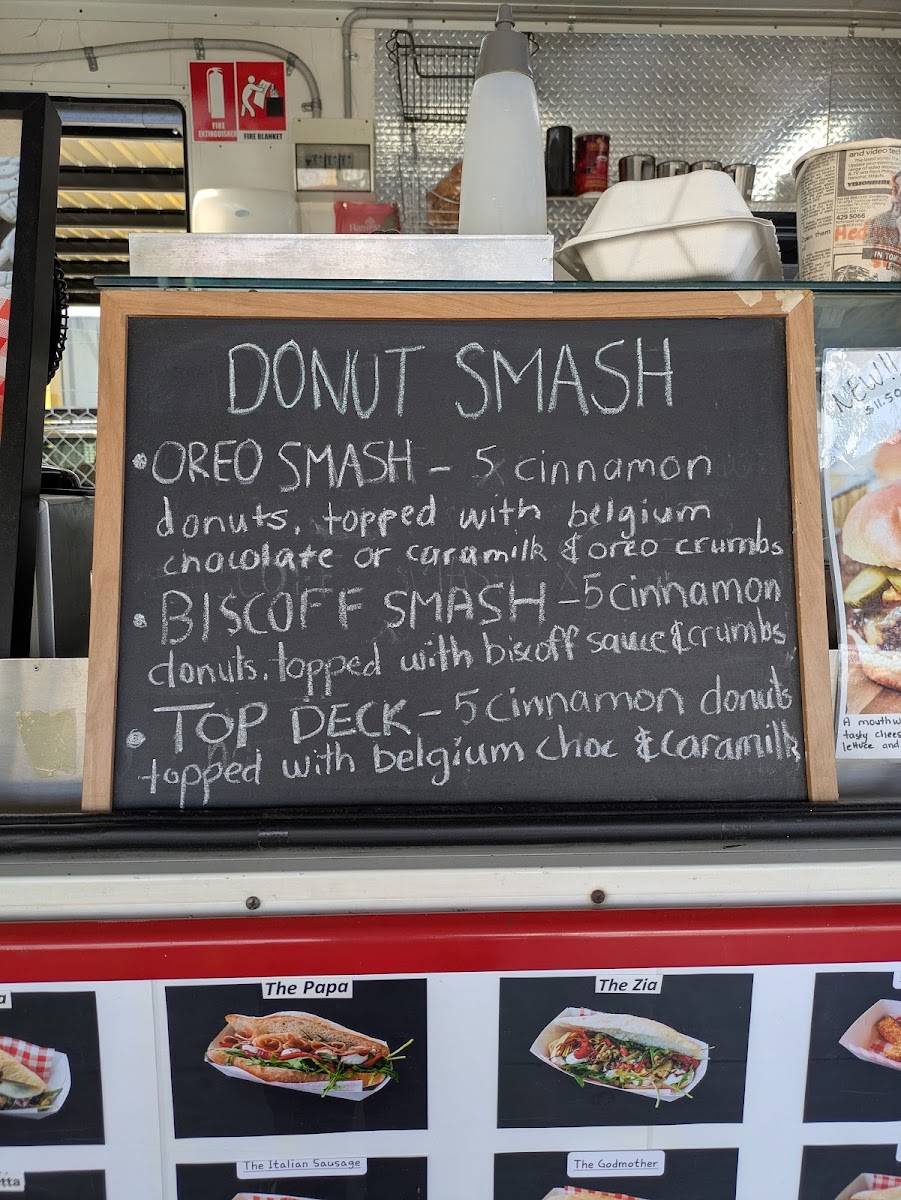 FIRE
EXTINGUISHER
FIRE BLANKET
and video tec
VISIONBIRD
429 5066
IN TOW
NEW!!
$11.50
DONUT SMASH
• OREO SMASH - 5 cinnamon
donuts, topped with belgium
chocolate or caramilk & oreo crumbs
• BISCOFF SMASH - 5 cinnamon
donuts, topped with biscoff sauce & crumbs
• TOP DECK - 5 cinnamon donuts
topped with belgium choc & caramilk
A mouthw
tasty chees
lettuce and
a
The Papa
The Zia
tta
The Italian Sausage
The Godmother